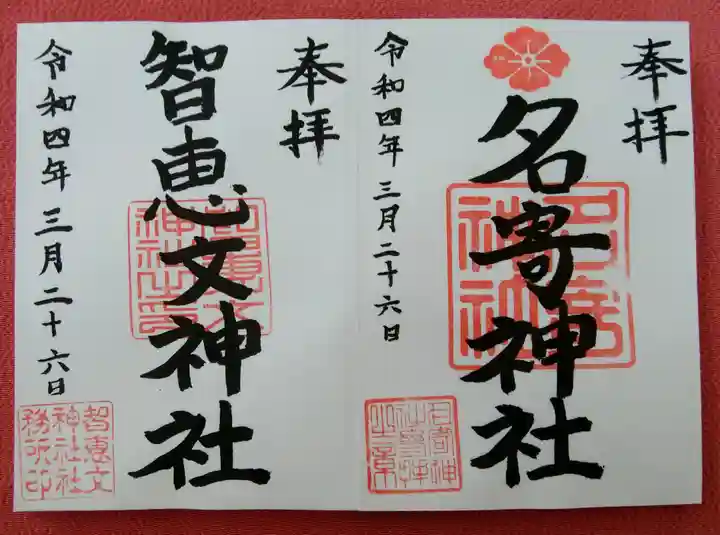 奉拝
名寄神社
名寄
神社
令和四年三月二十六日
奉拝
智恵文神社
智恵文
神社之印
令和四年三月二十六日
智恵文
神社社
務所印